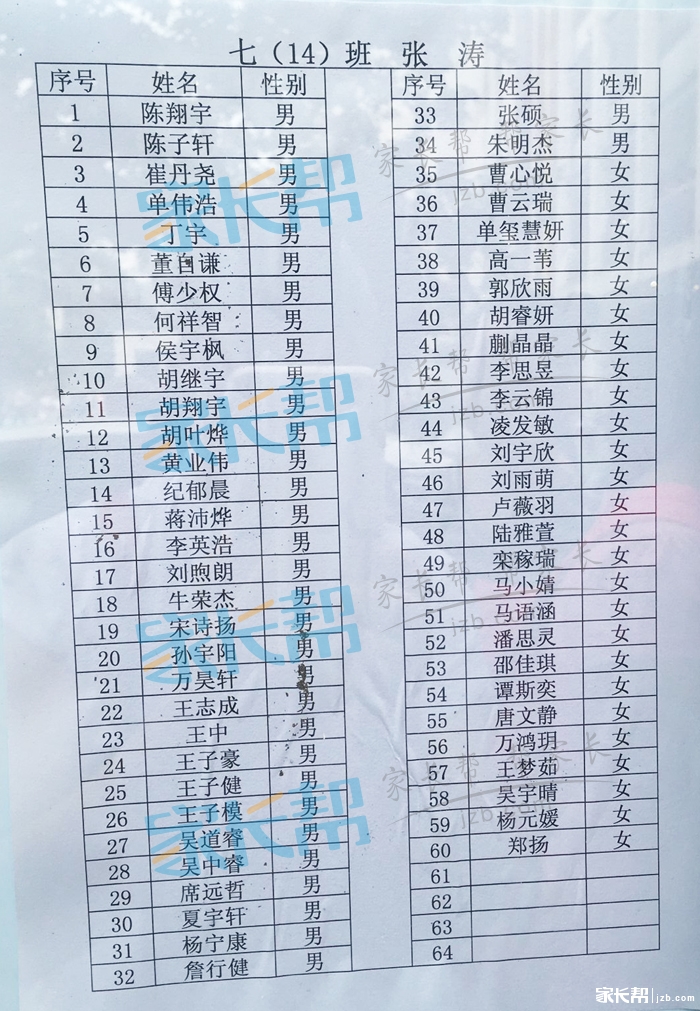 七（14）班 张 涛
序号 姓名 性别
1 陈翔宇 男
2 陈子轩 男
3 崔丹尧 男
4 单伟浩 男
5 丁宇 男
6 董自谦 男
7 傅少权 男
8 何祥智 男
9 侯宇枫 男
10 胡继宇 男
11 胡翔宇 男
12 胡叶烨 男
13 黄业伟 男
14 纪郁晨 男
15 蒋沛烨 男
16 李英浩 男
17 刘煦朗 男
18 牛荣杰 男
19 宋诗扬 男
20 孙宇阳 男
21 万昊轩 男
22 王志成 男
23 王中 男
24 王子豪 男
25 王子健 男
26 王子模 男
27 吴道睿 男
28 吴中睿 男
29 席远哲 男
30 夏宇轩 男
31 杨宁康 男
32 詹行健 男
序号 姓名 性别
33 张硕 男
34 朱明杰 男
35 曹心悦 女
36 曹云瑞 女
37 单玺慧妍 女
38 高一苇 女
39 郭欣雨 女
40 胡睿妍 女
41 蒯晶晶 女
42 李思昱 女
43 李云锦 女
44 凌发敏 女
45 刘宇欣 女
46 刘雨萌 女
47 卢薇羽 女
48 陆雅萱 女
49 栾稼瑞 女
50 马小婧 女
51 马语涵 女
52 潘思灵 女
53 邵佳琪 女
54 谭斯奕 女
55 唐文静 女
56 万鸿玥 女
57 王梦茹 女
58 吴宇晴 女
59 杨元媛 女
60 郑扬 女
61
62
63
64
家长帮 jzb.com